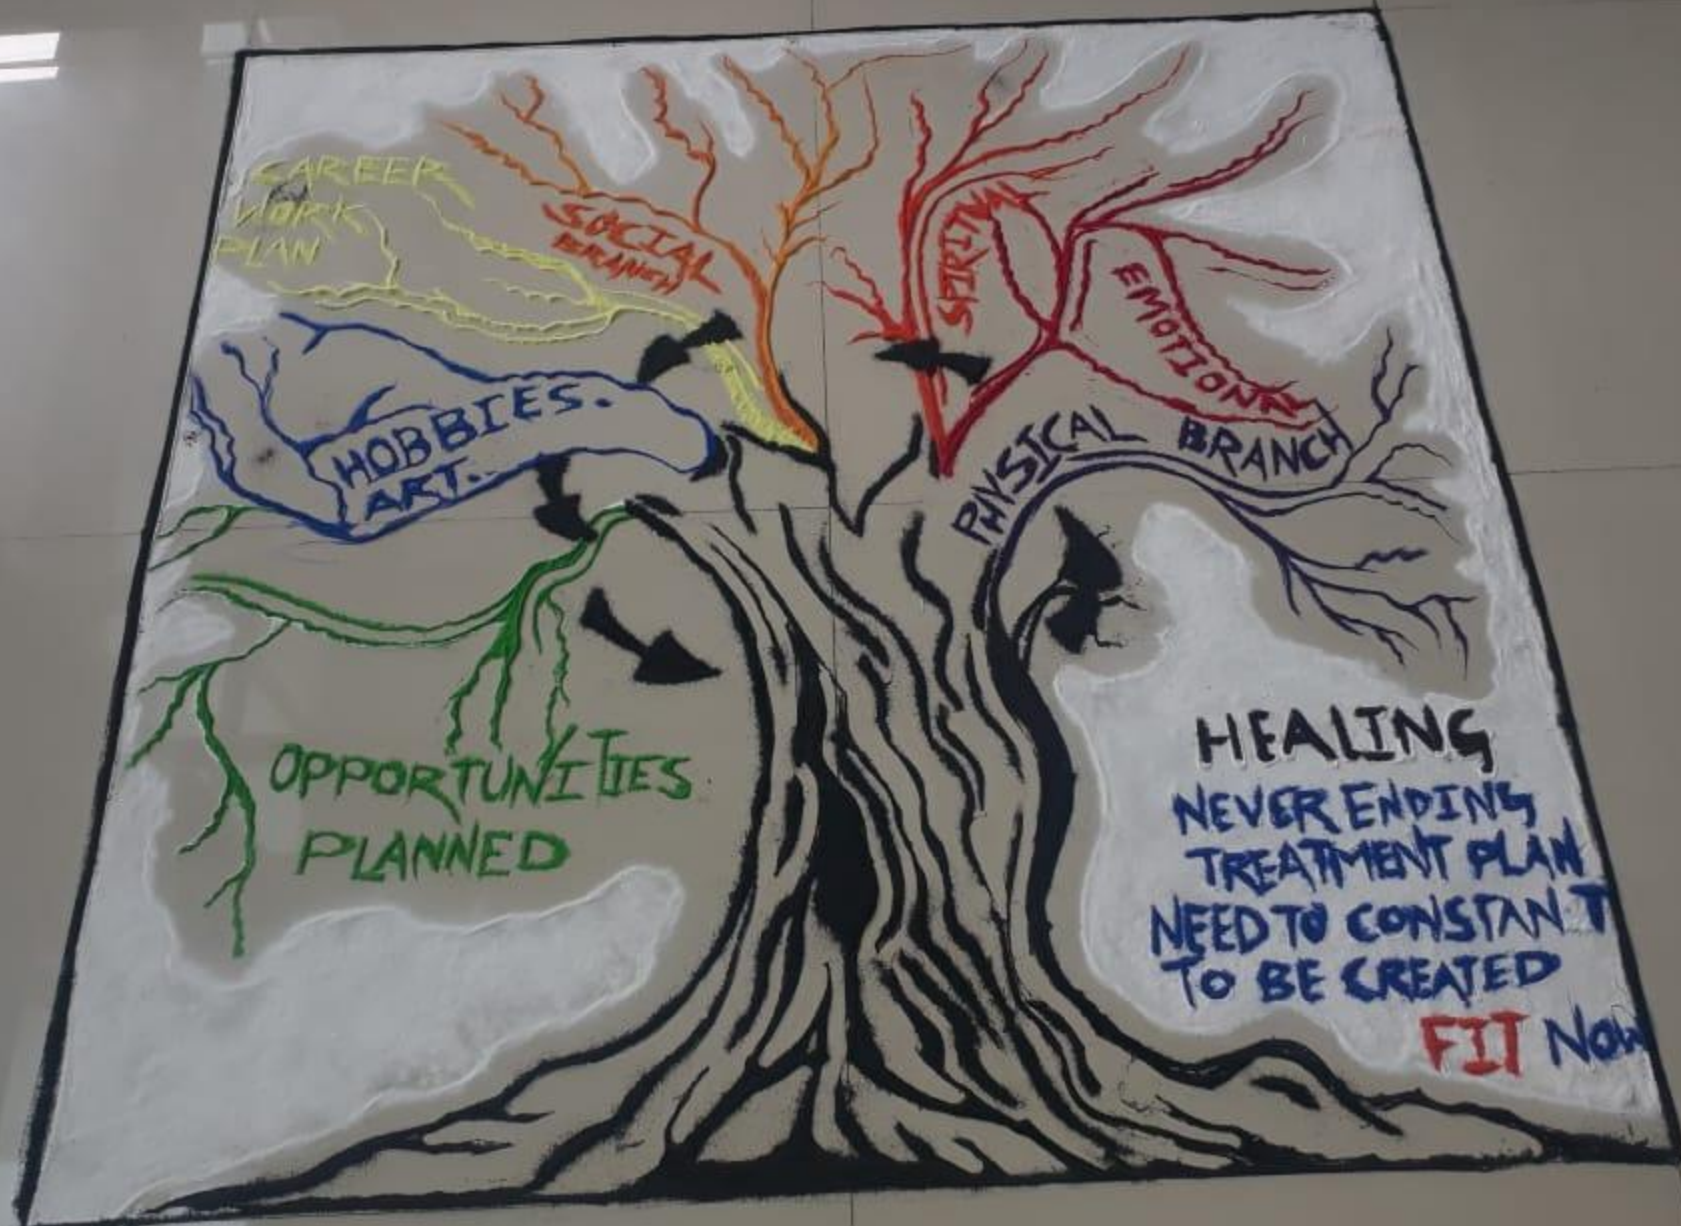 CAREER
WORK
PLAN
SOCIAL
BRANCH
SPIRITNAL
EMOTIONAL
HOBBIES.
ART..
PHYSICAL BRANCH
OPPORTUNITIES
PLANNED
HEALING
NEVER ENDING
TREATMENT PLAN
NEED TO CONSTANT
TO BE CREATED
FIT NOW